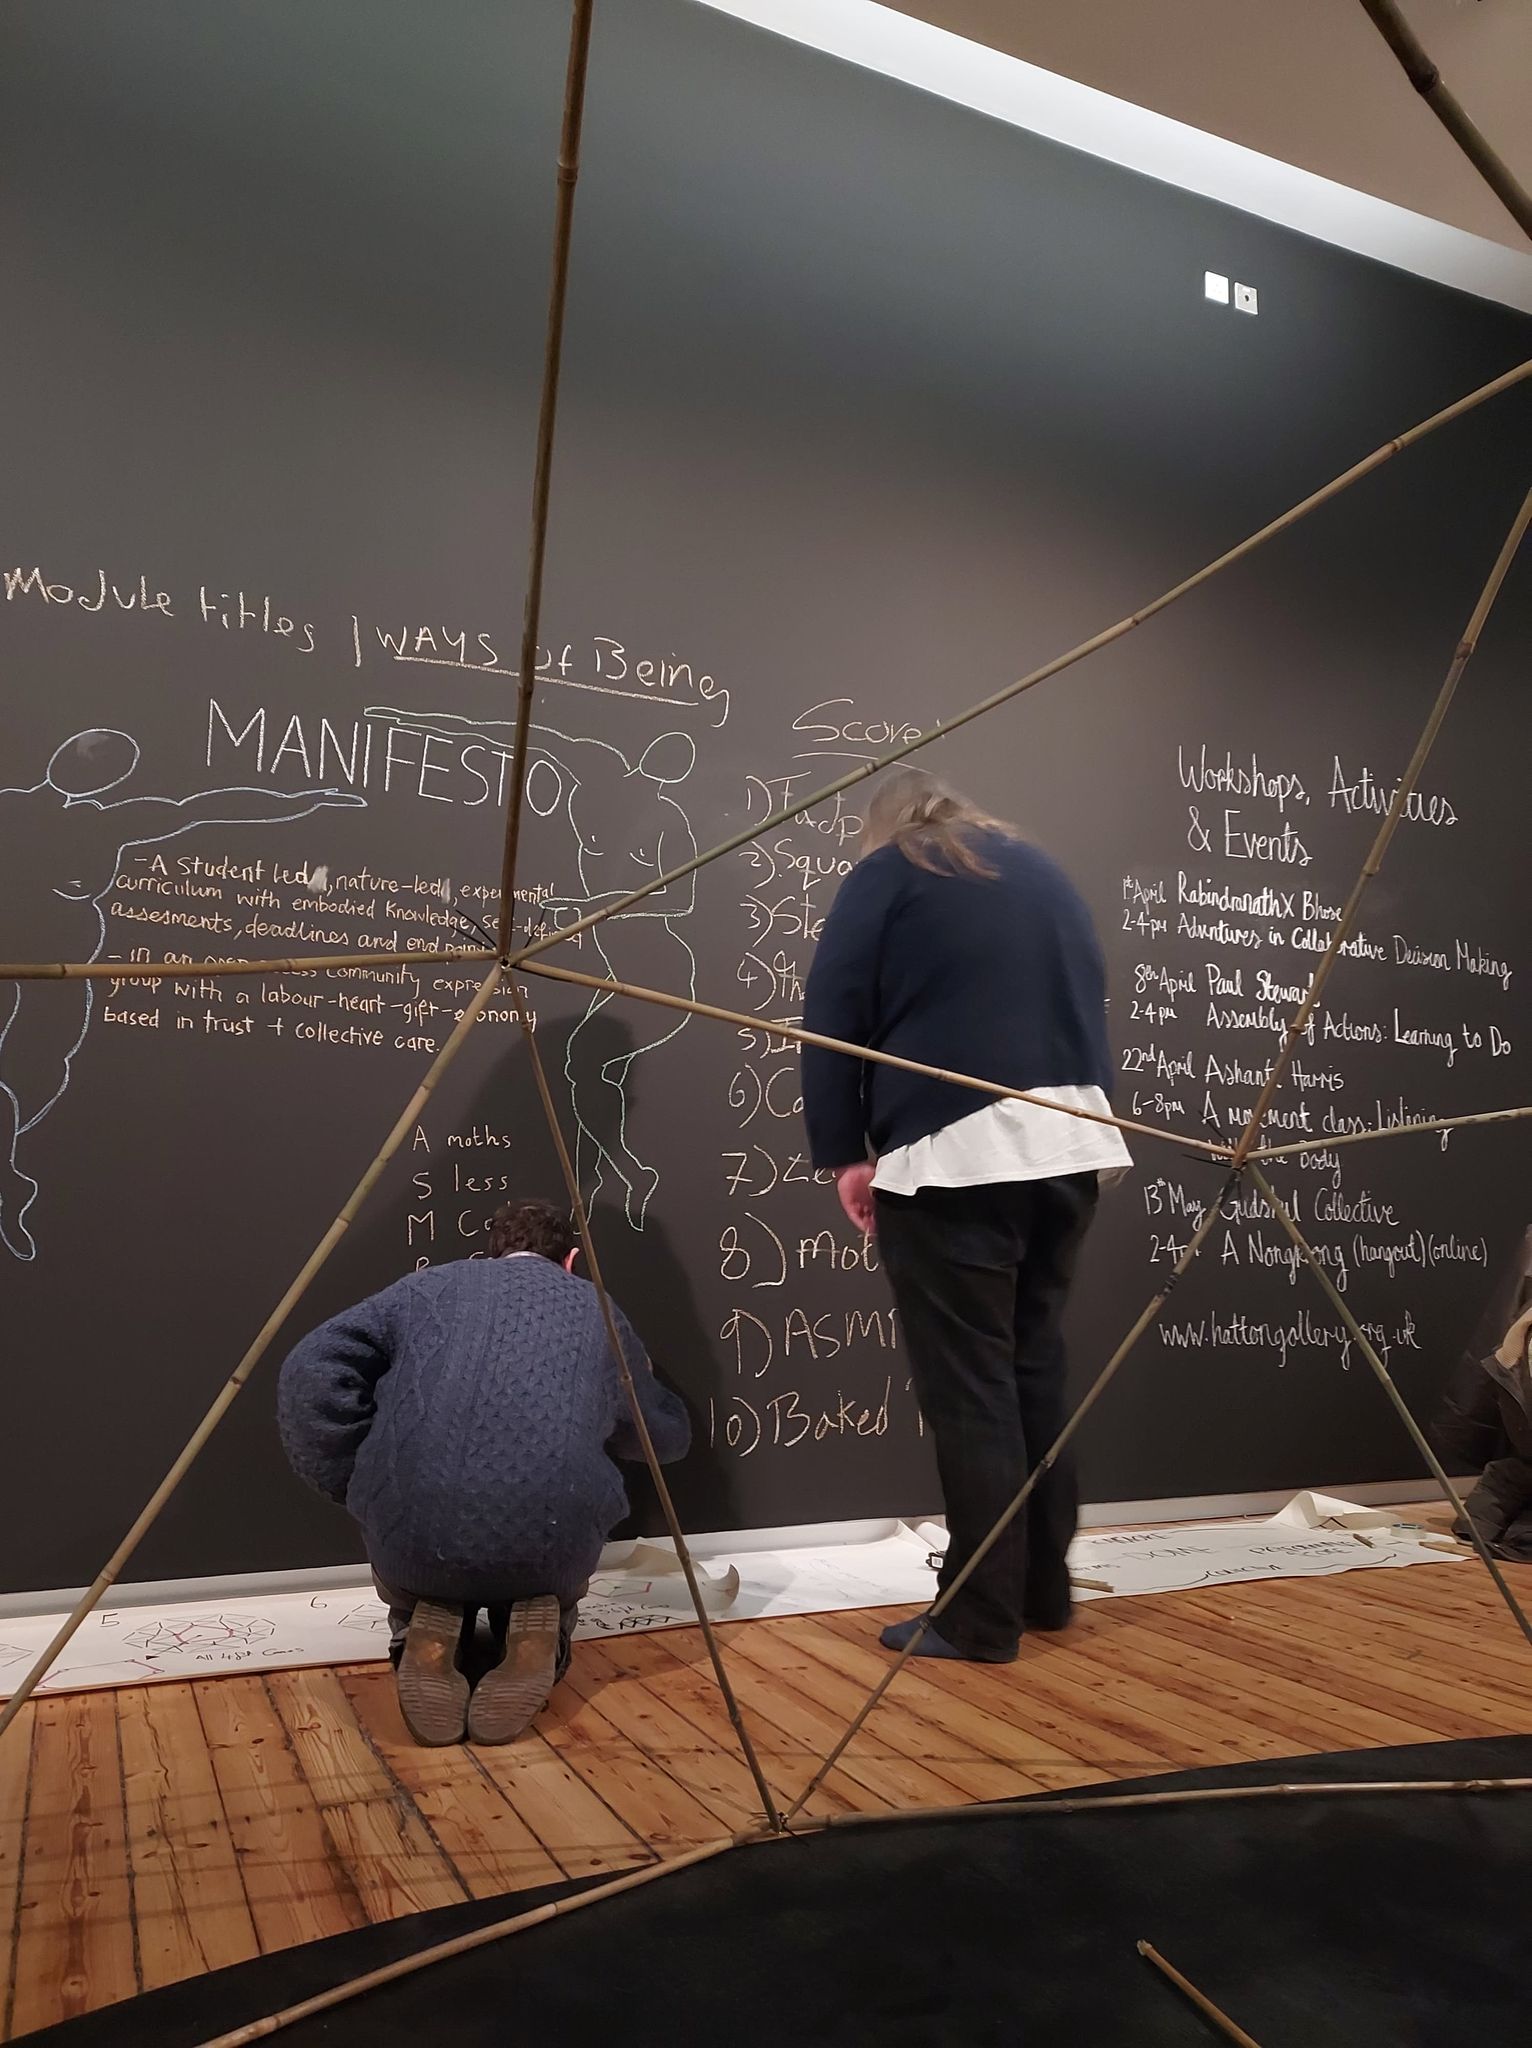 Module titles | WAYS of Being
MANIFESTO
- A student led, nature-led, experimental
curriculum with embodied knowledge, self-defined
assesments, deadlines and end
- in an open access community expression
group with a labour-heart-gift-economy
based in trust + collective care.
A moths
S less
M
Score:
1)
2) Squa
3) Ste
4)
5)
6) Ca
7) Le
8) Mot
9) ASMR
10) Baked
Workshops, Activities
& Events
1st April Rabindranath X Bhose
2-4pm Adventures in Collaborative Decision Making
8th April Paul Stewart
2-4pm Assembly of Actions: Learning to Do
22nd April Ashanti Harris
6-8pm A movement class: Listening
with the Body
13th May Gudskul Collective
2-4pm A Nongkrong (hangout) (online)
www.hattongallery.org.uk
5
6
All light Cones
DOME
COLLECTIVE